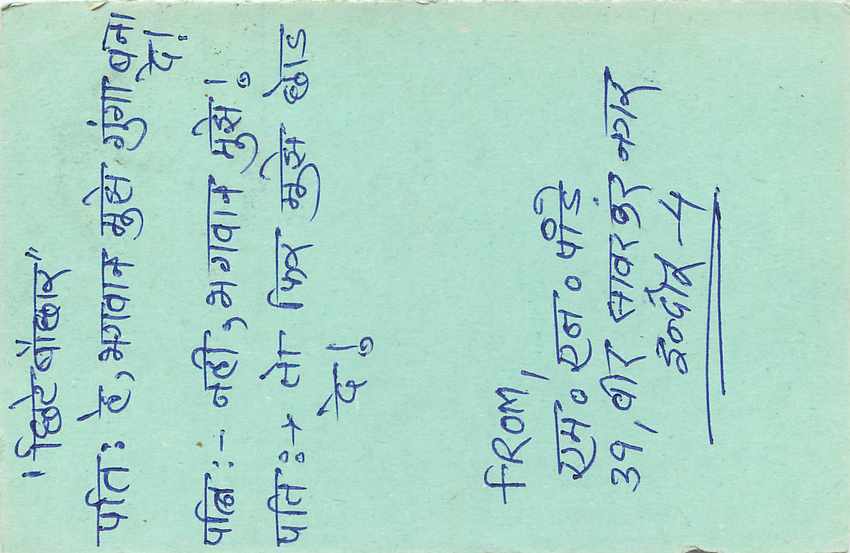 "छिटे बौछार"
पति: हे, भगवान मुझे गुंगा बना
दे!
पत्नि :- नही, भगवान मुझे!
पति :→ तो फिर मुझे छोड
दे!
FROM,
एम० एन० पांडे
39, वीर सावरकर नगर
इन्दौर - 4